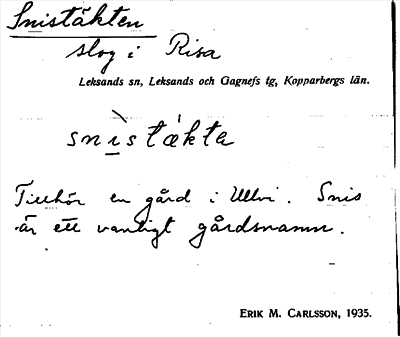 Snistäkten
slog i Risa
Leksands sn, Leksands och Gagnefs tg, Kopparbergs län.
snìstákta
Tillhör en gård i Ullvi. Snis
är ett vanligt gårdsnamn.
ERIK M. CARLSSON, 1935.